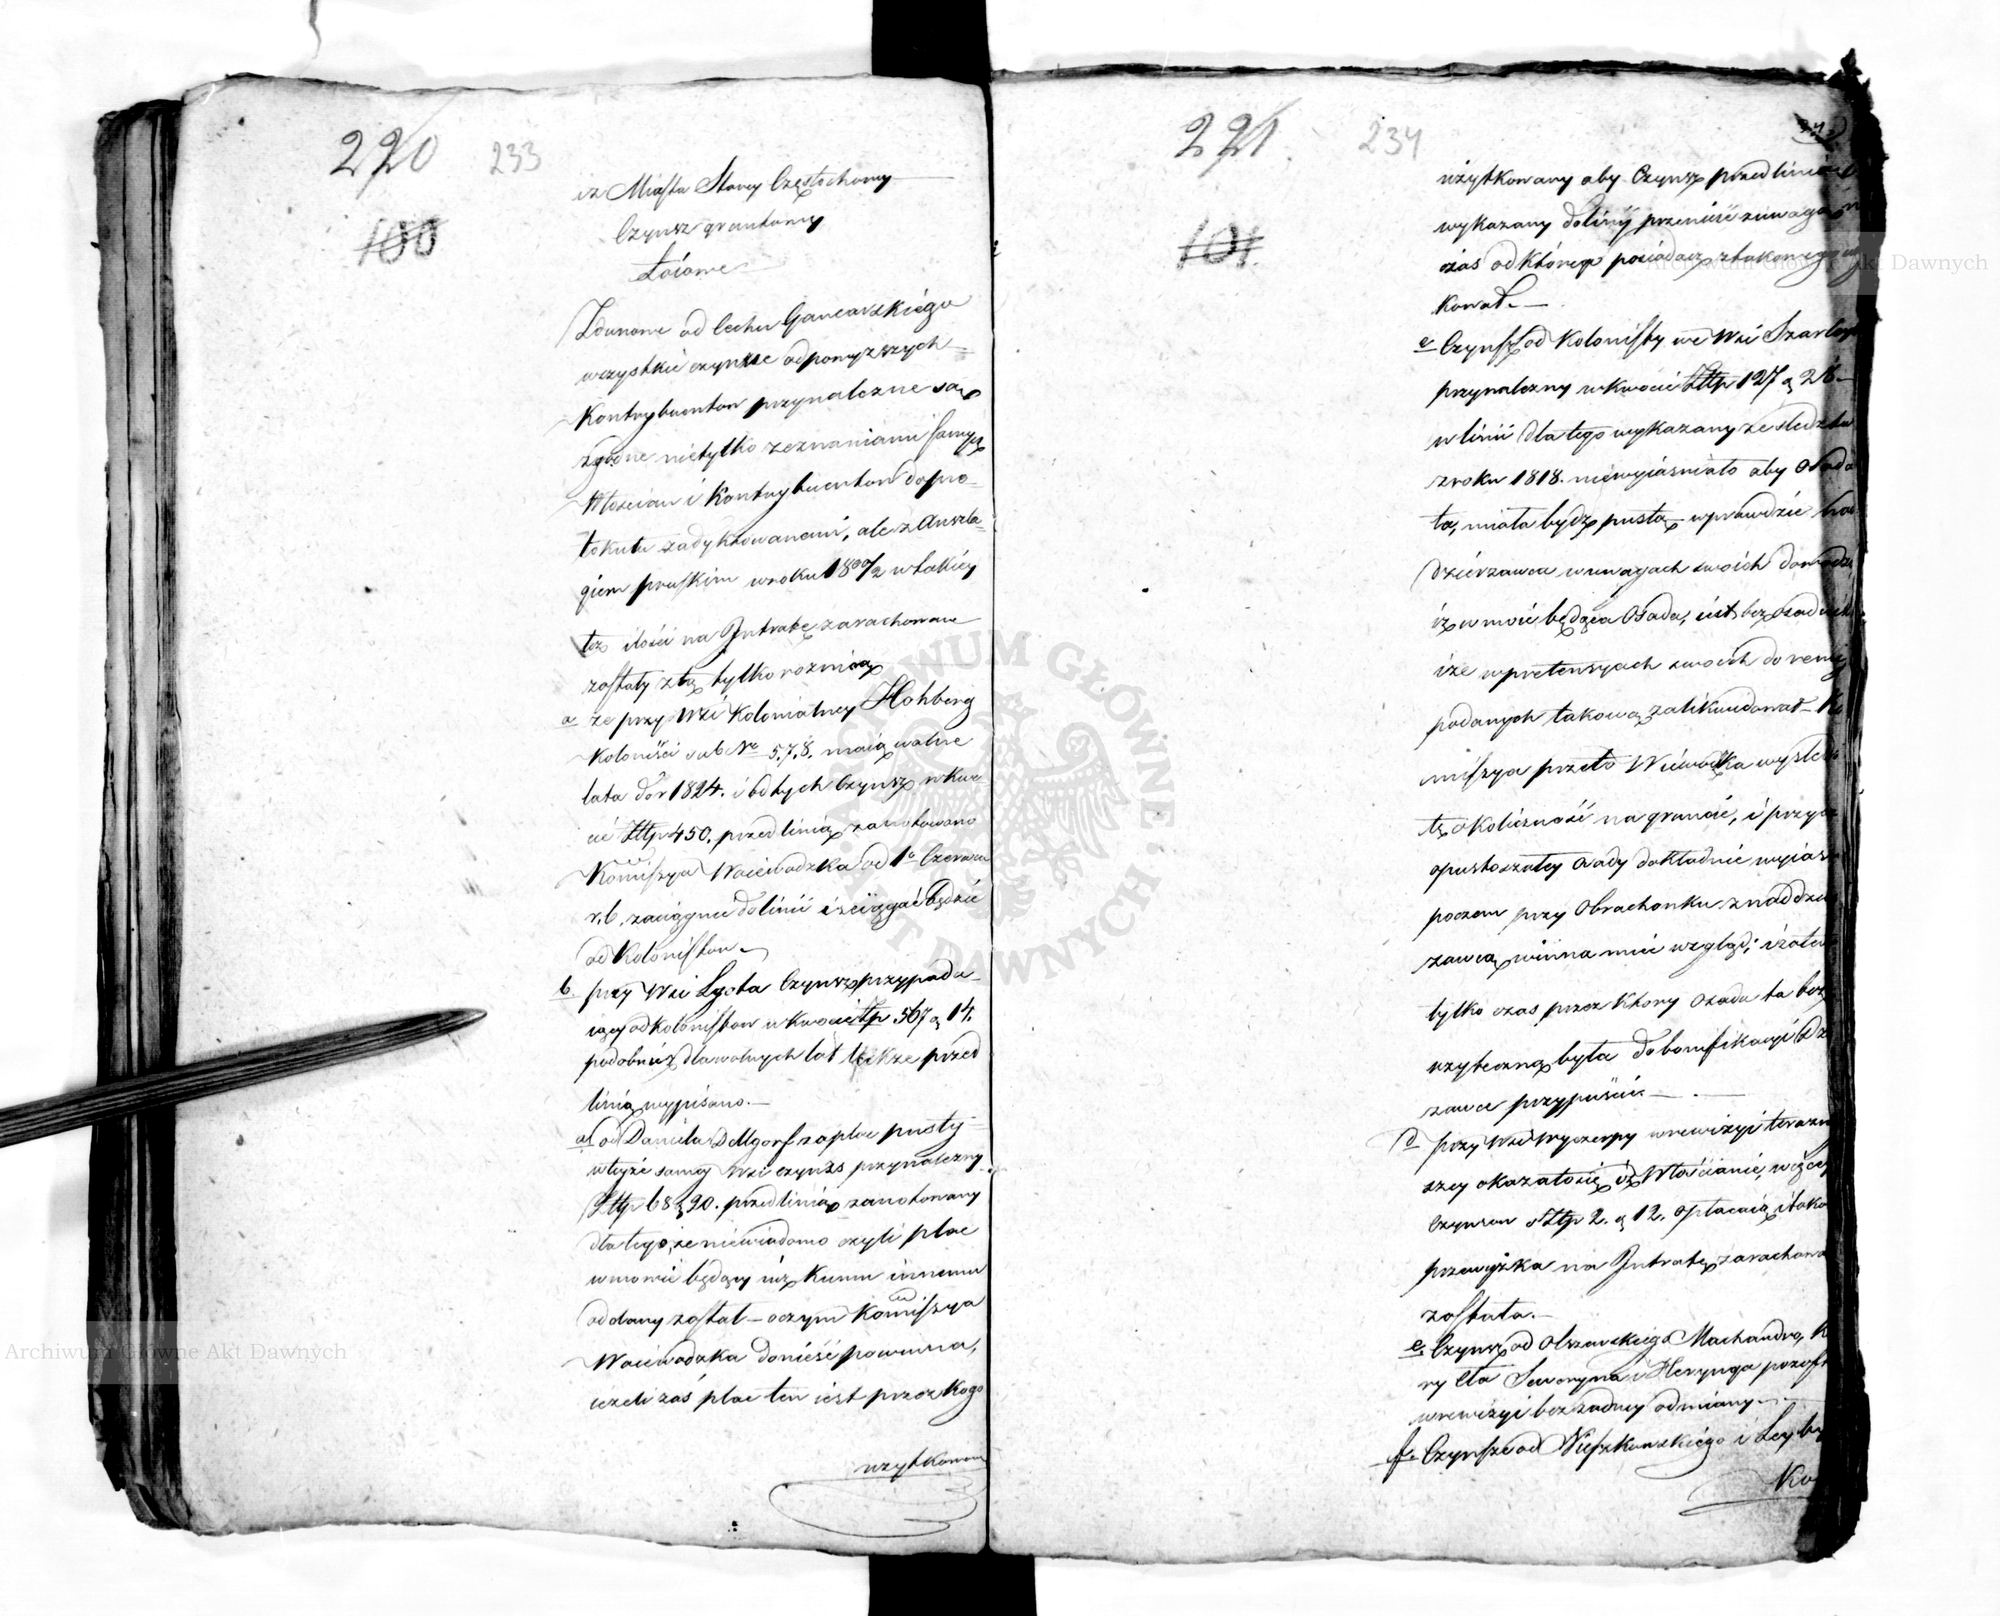 220 233
100
z Miasta Starey Częstochowy
Czynsz gruntowy
Łoiowe
Zdunowe od Cechu Garncarskiego
wszystkie czynsze od powyzszych
Kontrybuentow przynalezne są
zgodne nietylko zeznaniami samych
Włoscian i Kontrybuentow do pro-
tokułu zadyktowanemi, ale z Anszla-
giem pruskim w roku 180½ w takiey
tez ilości na Intratę zarachowane
zostały z tą tylko roznicą
a ze przy Wsi Kolonialney Hohberg
Koloniści sub No 5.7.8. maią wolne
lata do r 1824. i od tych Czynsz w kwo
cie Złtp 450. przed linią zanotowano
Kommissya Woiewodzka od 1o Czerwca
r.b. zaciągnie do linii i ściągać będzie
od Kolonistow.
b. przy Wsi Lgota Czynsz przypada-
iący od Kolonistow w kwocie Złp 567 g 14.
podobnież dla wolnych lat także przed
linią wypisano.
c od Daniela Dellgorf za plac pusty
w teyże samey Wsi czynsz przynalezny
Złtp 68 g 20. przed linią zanotowany
dla tego, ze niewiadomo czyli plac
w mowie będący iuż komu innemu
oddany został – o czym Kommissya
Woiewodzka donieść powinna,
iezeli zas plac ten iest przez kogo
uzytkowany
221. 234
101.
użytkowany aby Czynsz przed linią
wykazany do linij przenieść z uwagą na
czas od którego posiadacz z takowego
kował.
c Czynsz od Kolonisty we Wsi Szarley
przynalezny w kwocie Złtp 127 g 26
w linii dla tego wykazany ze śledztwo
z roku 1818. niewyiasniało aby Osada
ta, miała bydz pustą wprawdzie
Dzierzawca w uwagach swoich dowodzi
iż w mowie będąca Osada, iest bez osadnika
i ze w pretensyach swoich do remissy
podanych takową zalikwidował
missya przeto Woiewodzka wysledzi
tę okoliczność na gruncie, i przyczynę
opustoszałey Osady dokładnie wyiasni
poczem przy Obrachunku z nad dzier
zawcą winna mieć wzgląd; i za ten
tylko czas przez ktory Osada ta bez
uzyteczną była do bonifikacyi Dzier
zawce przypuścić.
d przy Wsi Wyczerpy w rewizyi teraznie
szey okazało się iż Włościanie, więcey
Czynszu o Złtp 2. g 12. opłacaią i takowa
przewyżka na Intratę zarachowaną
została.
e. Czynsz od Olszewskiego Machandra,
Seweryna i Herynga pozost
w rewizyi bez żadney odmiany.
f. Czynsze od Nieszkowskiego i Leyby
Archiwum Główne Akt Dawnych
Archiwum Główne Akt Dawnych
ARCHIWUM GŁÓWNE AKT DAWNYCH